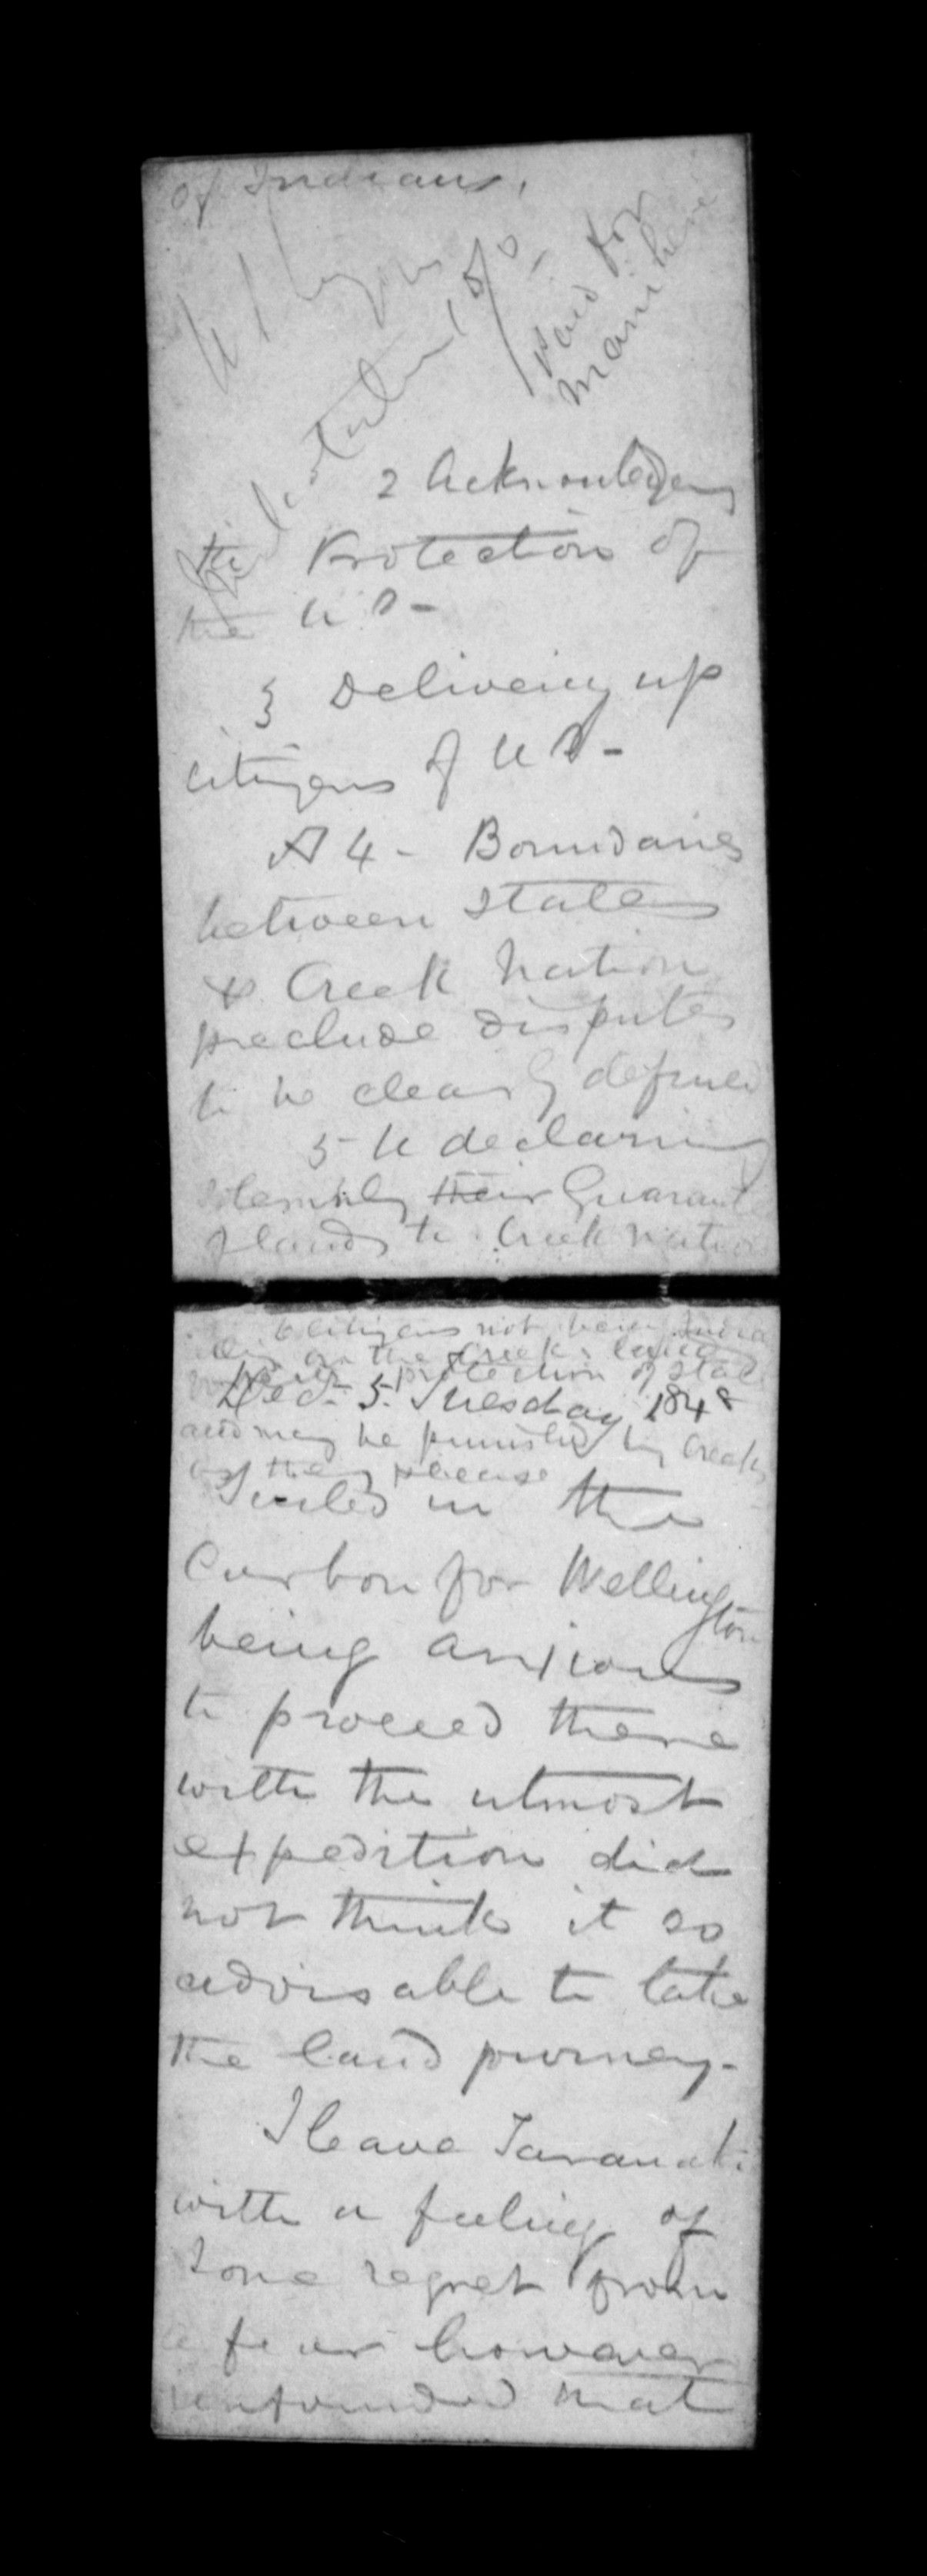 of Indians.
paid for
2 Acknowledging
the Protection of
the U S -
3 Delivering up
citizens of U S -
A 4 - Boundaries
between States
& Creek Nation
preclude disputes
to be clearly defined
5 U declaring
solemnly their Guarantee
of lands to Creek Nation
6 Citizens not having
on the Creeks land
protection of State
Dec. 5. Tuesday 1848
and may be punished by Creeks
as they please
Sailed in the
for Wellington
being anxious
to proceed there
with the utmost
expedition did
not think it so
advisable to take
the land journey.
I leave Taranaki
with a feeling of
some regret from
a fear however
unfounded that